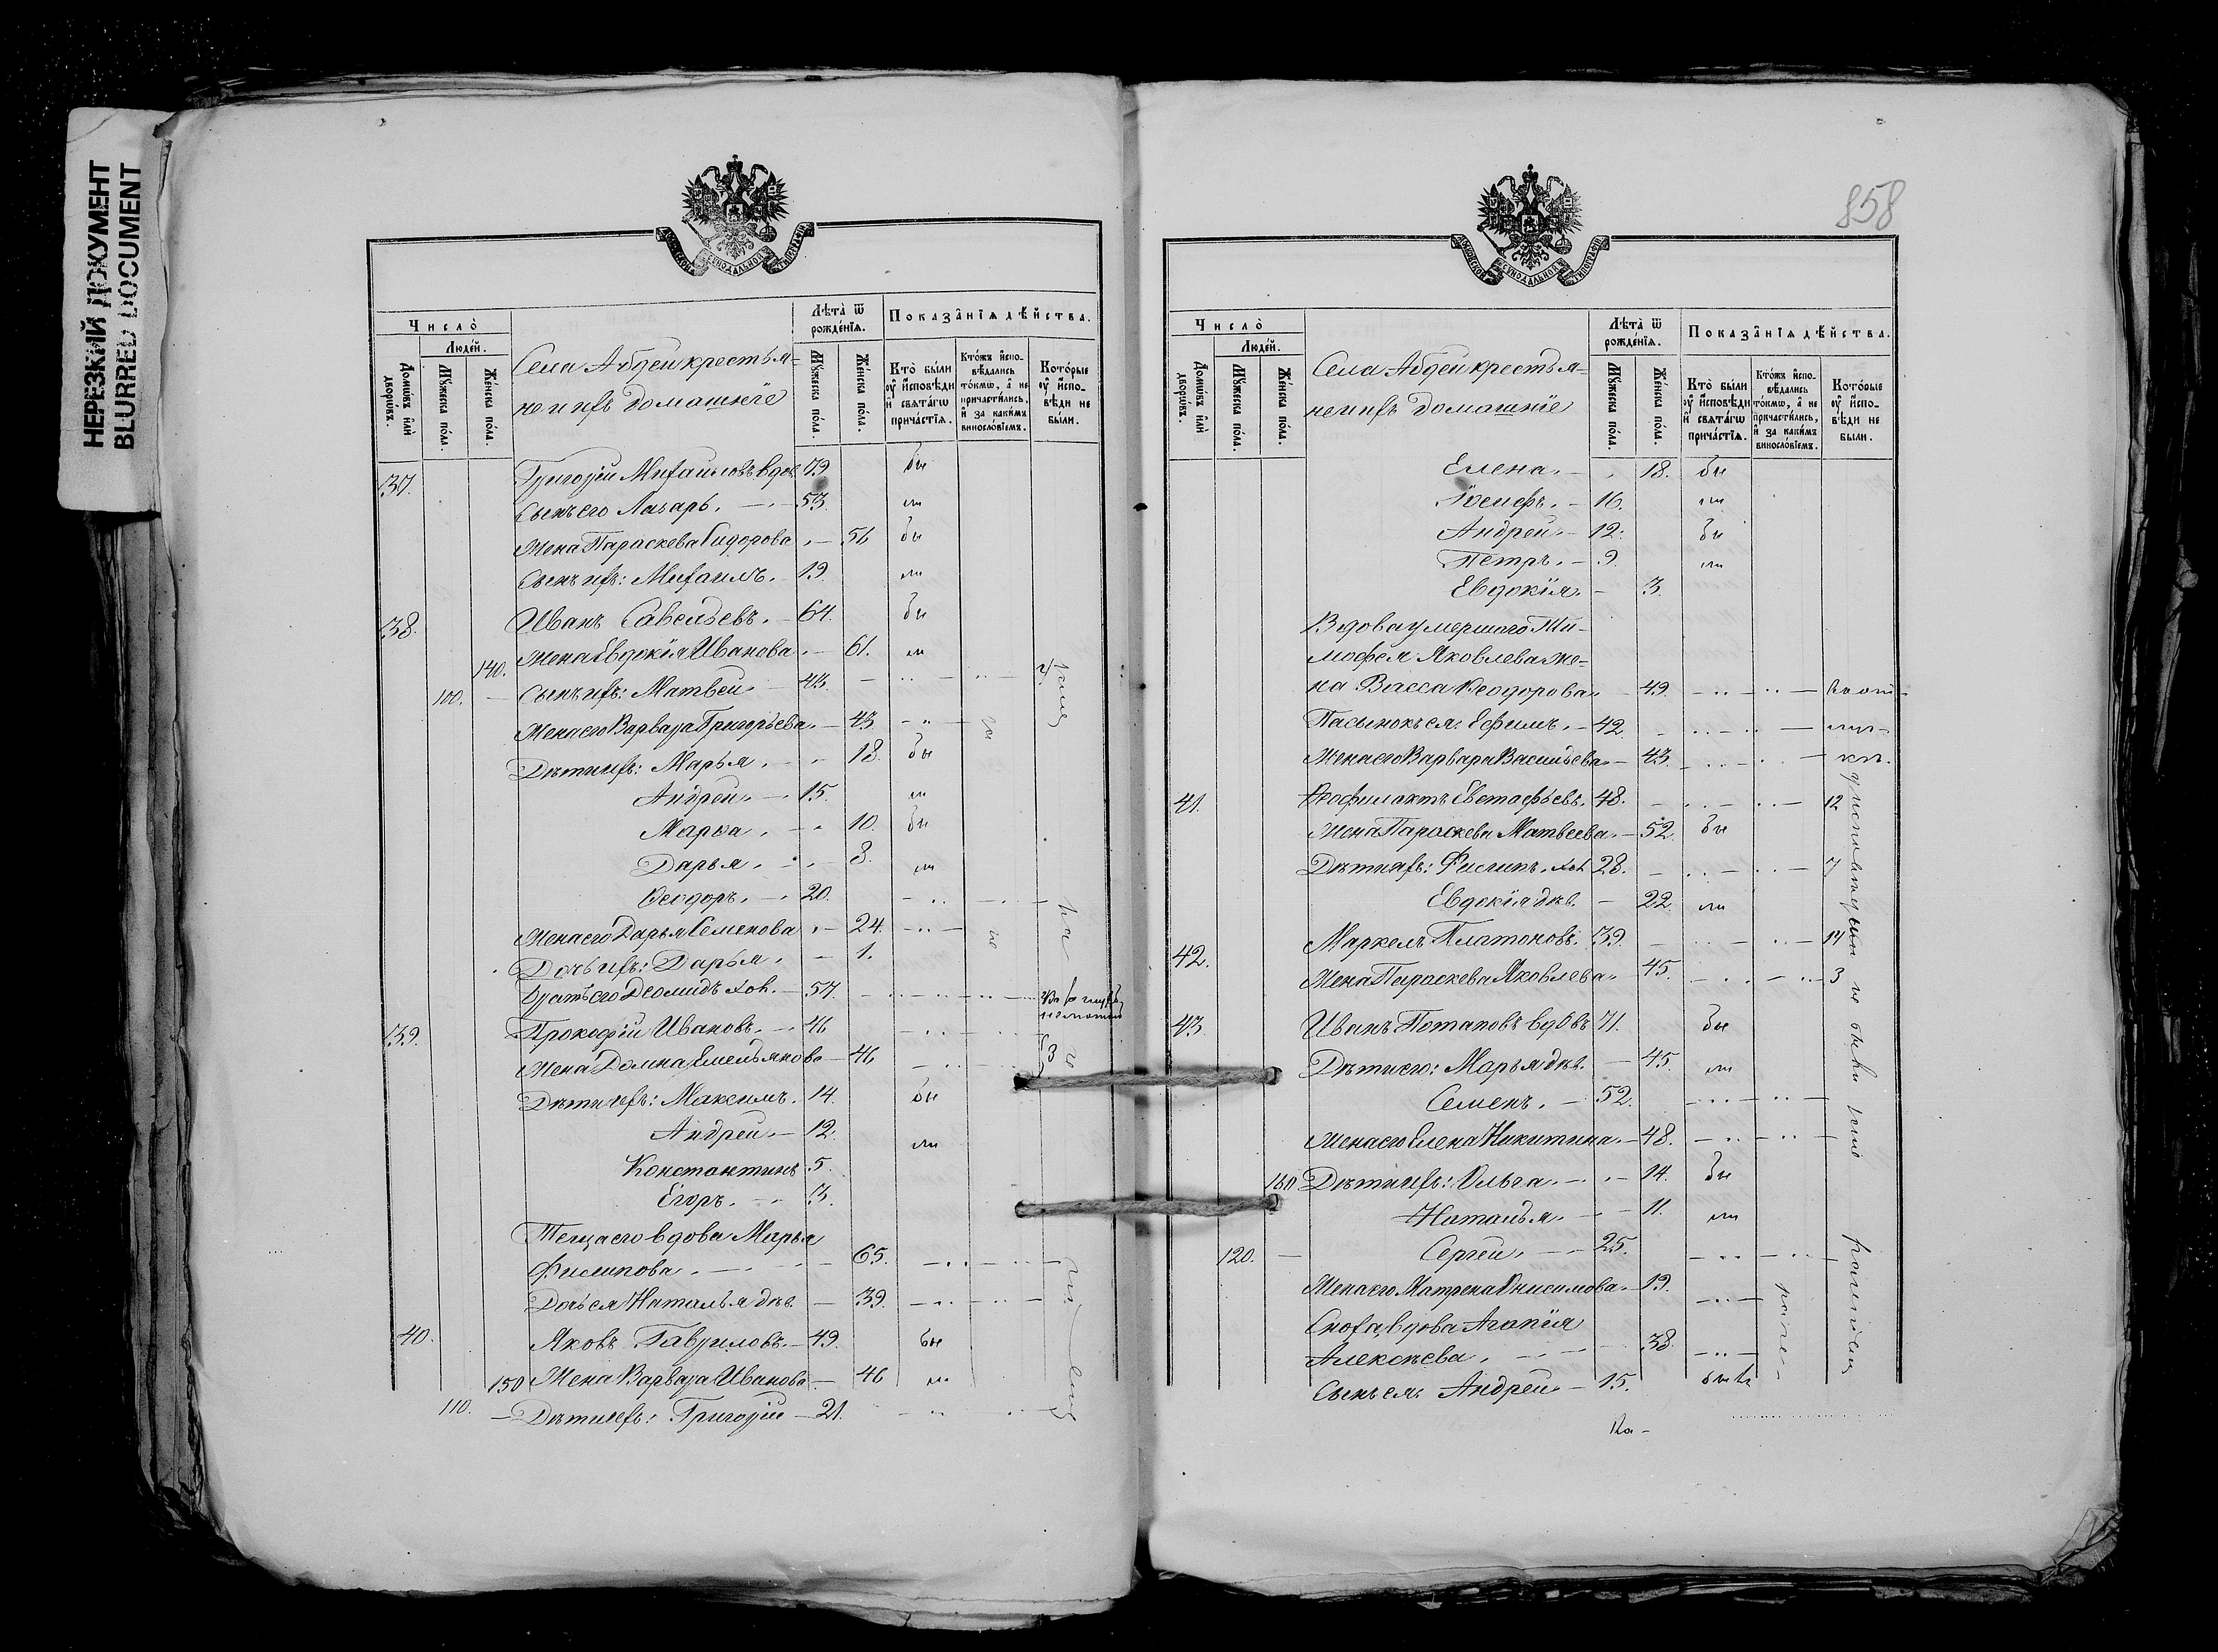 НЕРЕЗКИЙ ДОКУМЕНТ
BLURRED DOCUMENT
СѴНОДАЛЬНОЙ
Число̀
Людéй.
Домѡ́въ и҆лѝ дворѡ́въ.
Мꙋ́жеска по́ла.
Же́нска по́ла.
Села Абдеи крестья-
не и ихъ домашніе
Лѣта̀ ѿ рожде́нїѧ.
Мꙋ́жеска по́ла.
Же́нска по́ла.
Показа̂нїѧ дѣ́йства.
Кто̀ бы́ли ᲂу҆ и҆́сповѣди и҆ свѧта́гѡ прича́стїѧ.
Кто́жъ и҆спо-вѣ́дались то́кмѡ, а҆ не причасти́лись, и҆ за каки́мъ винослóвїемъ.
Кото́рые ᲂу҆ и҆́спо-вѣди не бы́ли.
37. Григорій Михаиловъ вдов. 79 бы
Сынъ его Лазарь. 53. ли
Жена Параскева Сидорова 56 бы
Сынъ ихъ: Михаилъ. 19. ли
38. Иванъ Савельевъ. 64. бы
140. Жена Евдокія Иванова 61. ли
100. Сынъ ихъ: Матвей 43.
Жена его Варвара Григорьева. 43.
Дети ихъ: Марья. 18. бы
Андрей. 15. ли
Марѳа. 10. бы
Дарья. 8. ли
Ѳеодоръ. 20.
Жена его Дарья Семенова 24.
Дочь ихъ: Дарья. 1.
Братъ его Деомидъ хол. 57.
39. Прокофій Ивановъ. 46
Жена Домна Емельянова 46 3
Дети ихъ: Максимъ. 14. бы
Андрей. 12. ли
Константинъ 5.
Егоръ. 3.
Теща его вдова Марья
Филипова. 65.
Дочь ея Наталья дѣв. 39.
40. Яковъ Гавриловъ. 49. бы
150 Жена Варвара Иванова 46 ли
110. Дети ихъ: Григорій 21.
858
МОСКОВСКОЙ СѴНОДАЛЬНОЙ ТИПОГРАФІИ
Число̀
Людéй.
Домѡ́въ и҆лѝ дворѡ́въ.
Мꙋ́жеска по́ла.
Же́нска по́ла.
Села Абдеи крестья-
не и ихъ домашніе
Лѣта̀ ѿ рожде́нїѧ.
Мꙋ́жеска по́ла.
Же́нска по́ла.
Показа̂нїѧ дѣ́йства.
Кто̀ бы́ли ᲂу҆ и҆́сповѣди и҆ свѧта́гѡ прича́стїѧ.
Кто́жъ и҆спо-вѣ́дались то́кмѡ, а҆ не причасти́лись, и҆ за каки́мъ винослóвїемъ.
Кото́рые ᲂу҆ и҆́спо-вѣди не бы́ли.
Елена. 18. бы
Іосифъ. 16. ли
Андрей. 12. бы
Петръ. 9. ли
Евдокія. 3.
Вдова умершаго Ти-
мофея Яковлева же-
на Васса Ѳеодорова. 49.
Пасынокъ ея: Ефимъ. 42.
Жена его Варвара Васильева. 43.
41. Ѳеофилактъ Евстафьевъ. 48. 12
Жена Параскева Матвеева. 52. бы
Дети ихъ: Филипъ. хол 28. 7
Евдокія дѣв. 22. ли
42. Маркелъ Платоновъ. 39. 14
Жена Параскева Яковлева. 45. 3
43. Иванъ Потаповъ вдовъ 71. бы
Дети его: Марья дѣв. 45. ли
Семенъ. 52.
Жена его Елена Никитина. 48.
160 Дети ихъ: Ольга. 14. бы
Наталья. 11. ли
120. Сергей. 25.
Жена его Матрена Онисимова. 19.
Сноха, вдова Агапія
Алексѣева. 38.
Сынъ ея: Андрей 15.